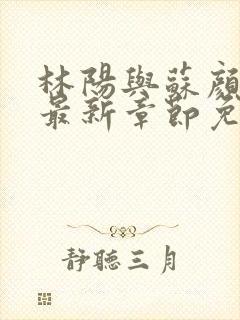 林陽與蘇顏
最新章節免
靜聽三月